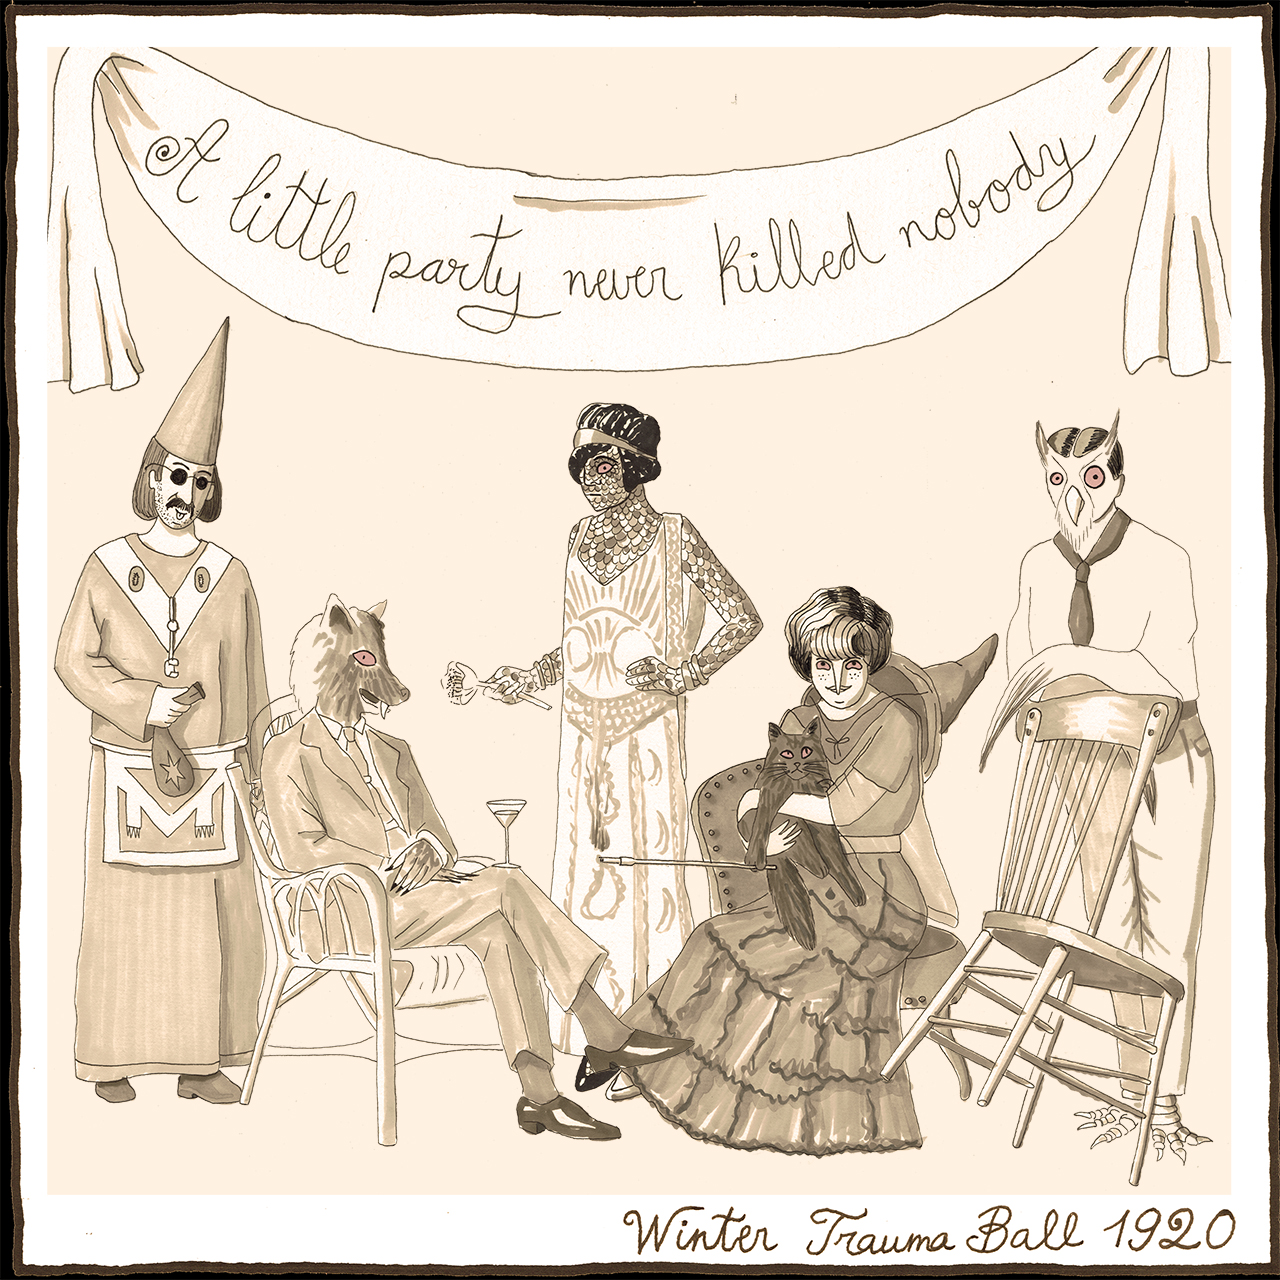 A little party never killed nobody
Winter Trauma Ball 1920